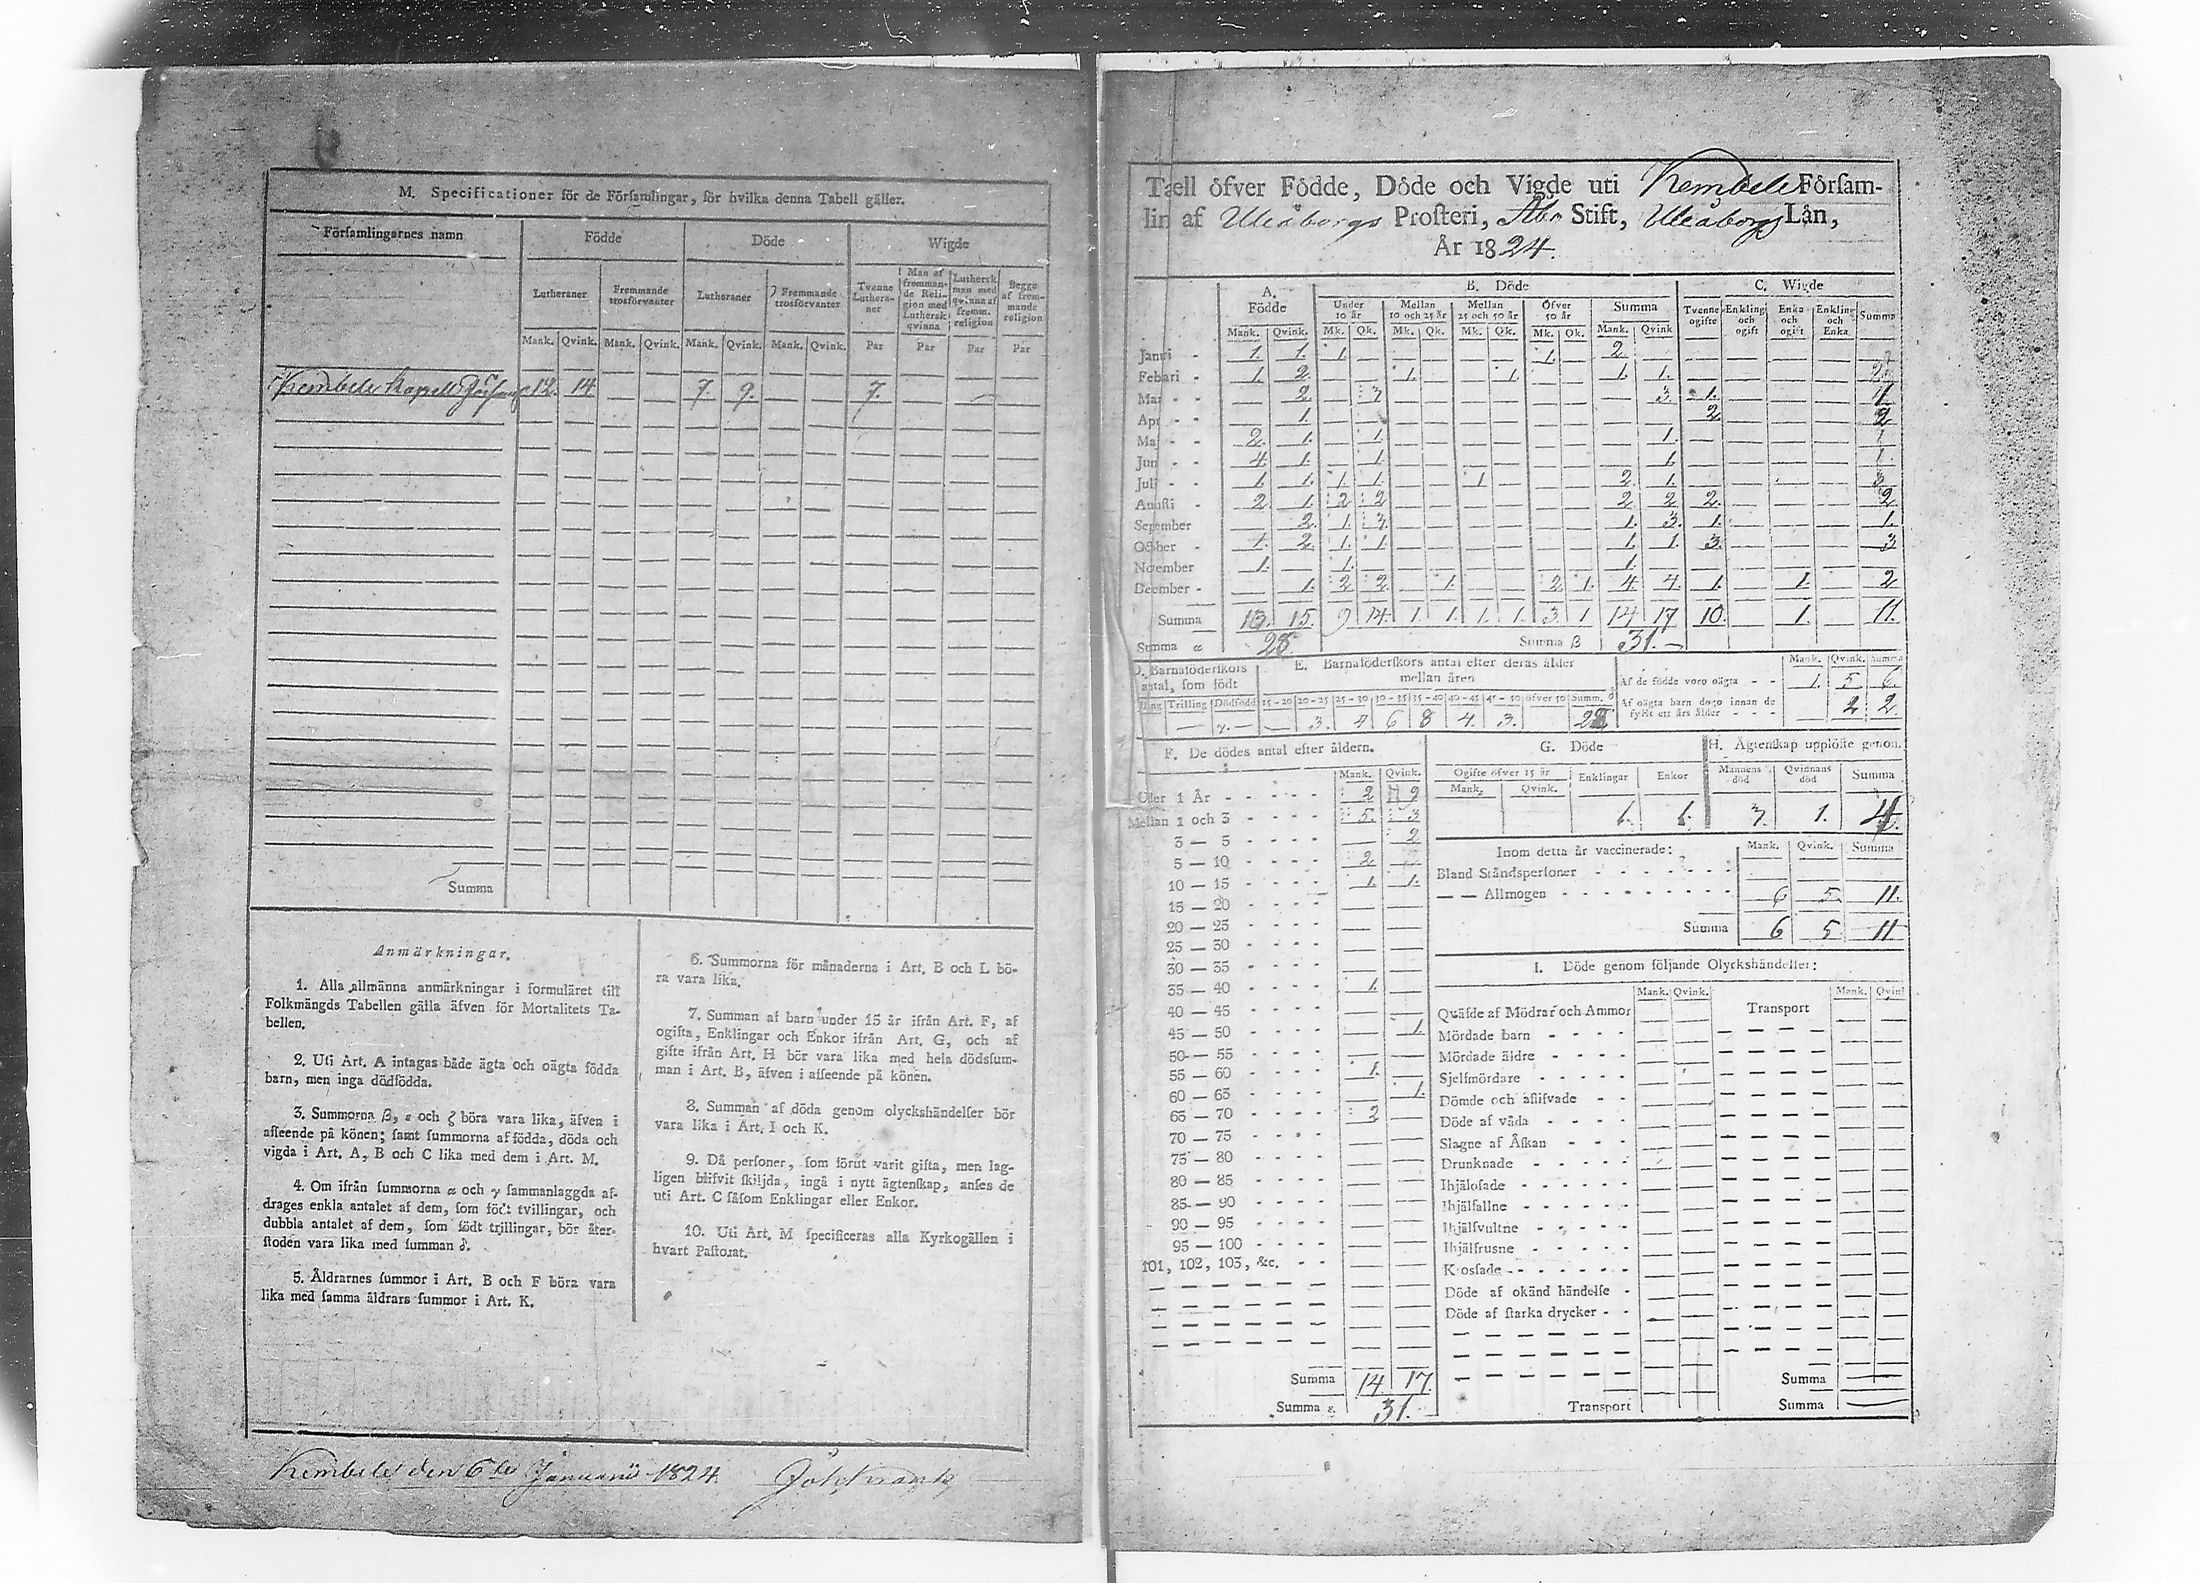 M. Specificationer för de Församlingar, för hvilka denna Tabell gäller.
Församlingarnes namn Födde Döde Wigde
Lutheraner Fremmande trosförvanter Lutheraner Fremmande trosförvanter Tvenne Lutheraner Man af fremmande Religion med Luthersk qvinna Luthersk man med qvinna af fremm. religion Begge af fremmande religion
Mank. Qvink. Mank. Qvink. Mank. Qvink. Mank. Qvink. Par Par Par Par
Kembele Kapells 12. 14 7. 9. 7.
Summa
Anmärkningar.
1. Alla allmänna anmärkningar i formuläret till
Folkmängds Tabellen gälla äfven för Mortalitets Ta-
bellen.
2. Uti Art. A intagas både ägta och oägta födda
barn, men inga dödfödda.
3. Summorna β, ε och ζ böra vara lika, äfven i
afseende på könen; samt summorna af födda, döda och
vigda i Art. A, B och C lika med dem i Art. M.
4. Om ifrån summorna α och γ sammanlaggda af-
drages enkla antalet af dem, som födt tvillingar, och
dubbla antalet af dem, som födt trillingar, bör åter-
stoden vara lika med summan δ.
5. Åldrarnes summor i Art. B och F böra vara
lika med samma åldrars summor i Art. K.
6. Summorna för månaderna i Art. B och L bö-
ra vara lika.
7. Summan af barn under 15 år ifrån Art. F, af
ogifta, Enklingar och Enkor ifrån Art. G, och af
gifte ifrån Art. H bör vara lika med hela dödssum-
man i Art. B, äfven i afseende på könen.
8. Summan af döda genom olyckshändelser bör
vara lika i Art. I och K.
9. Då personer, som förut varit gifta, men lag-
ligen blifvit skiljda, ingå i nytt ägtenskap, anses de
uti Art. C såsom Enklingar eller Enkor.
10. Uti Art. M specificeras alla Kyrkogällen i
hvart Pastorat.
Kembele den 6te Januarii 1824.
Taell öfver Födde, Döde och Vigde uti Kembele Församl-
lin af Uleåborgs Prosteri, Åbo Stift, Uleåborgs Län,
År 1824.
A. Födde B. Döde C. Wigde
Under 10 år Mellan 10 och 25 år Mellan 25 och 50 år Öfver 50 år Summa Tvenne ogifte Enkling och ogift Enka och ogift Enkling och Enka Summa
Mank. Qvink. Mk. Qk. Mk. Qk. Mk. Qk. Mk. Qk. Mank. Qvink
Januri 1. 1. 1. 1. 2.
Febari 1. 2. 1. 1. 1. 1.
Mar 2. 3 3. 1.
Apr 1. 2. 2
Maj 2. 1. 1. 1.
Jun 4 1. 1. 1.
Juli 1. 1. 1. 1. 1 2. 1.
Aunsti 2. 1. 2 2 2 2 2. 2
September 2. 1. 3. 1. 3. 1. 1.
October 1. 2. 1. 1. 1. 1. 3. 3
November 1. 1. 1.
December 1. 2 2. 1. 2. 1. 4 4. 1. 1. 2
Summa 13. 15. 9 14. 1. 1. 1. 1. 3. 1 14 17 10. 1. 11.
Summa α 28. Summa β 31.
D. Barnaföderskors antal, som födt
E. Barnaföderskors antal efter deras ålder mellan åren
Mank. Qvink. Summa
Af de födde voro oägta 1. 5 6.
Af oägta barn dogo innan de fyllt ett års ålder 2 2.
Trilling Dödfödd 15-20 20-25 25-30 30-35 35-40 40-45 45-50 öfver 50 Summ. δ
3. 4 6 8 4. 3. 28
F. De dödes antal efter åldern.
Mank. Qvink.
Uder 1 År 2 9
Mellan 1 och 3 5. 3
3 — 5 2
5 — 10 2
10 — 15 1. 1.
15 — 20
20 — 25
25 — 30
30 — 35
35 — 40 1.
40 — 45
45 — 50 1.
50 — 55
55 — 60 1.
60 — 65 1.
65 — 70 2
70 — 75
75 — 80
80 — 85
85 — 90
90 — 95
95 — 100
101, 102, 103, &c.
Summa 14 17.
Summa ε. 31.
G. Döde H. Ägtenskap upplöste genom
Ogifte öfver 15 år Enklingar Enkor Mannens död Qvinnans död Summa
Mank. Qvink.
1. 1. 3. 1. 4.
Inom detta år vaccinerade: Mank. Qvink. Summa
Bland Ståndspersoner
— — Allmogen 6 5. 11.
Summa 6 5 11
I. Döde genom följande Olyckshändelser:
Mank. Qvink. Mank. Qvink
Qväfde af Mödrar och Ammor Transport
Mördade barn
Mördade äldre
Sjelfmördare
Dömde och aflifvade
Döde af våda
Slagne af Åskan
Drunknade
Ihjälosade
Ihjälfallne
Ihjälsvultne
Ihjälfrusne
Krossade
Döde af okänd händelse
Döde af starka drycker
Summa
Transport Summa